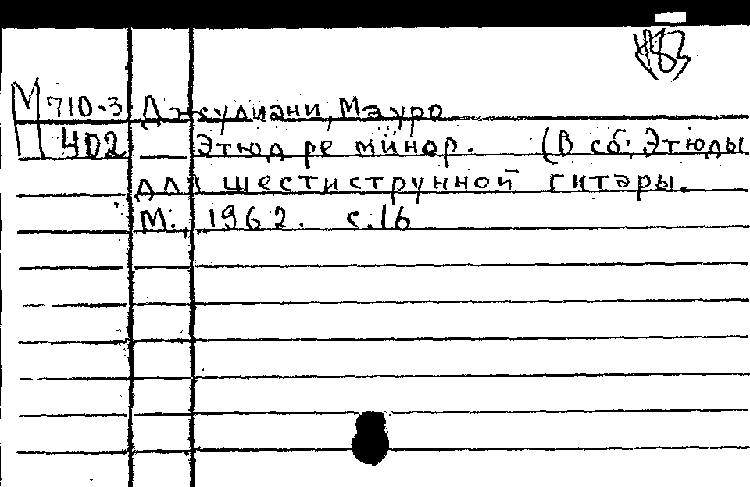 М 710-3 Джулиани, Мауро
402 Этюд ре минор. (В сб: Этюды
для шестиструнной гитары.
М., 1962. с.16